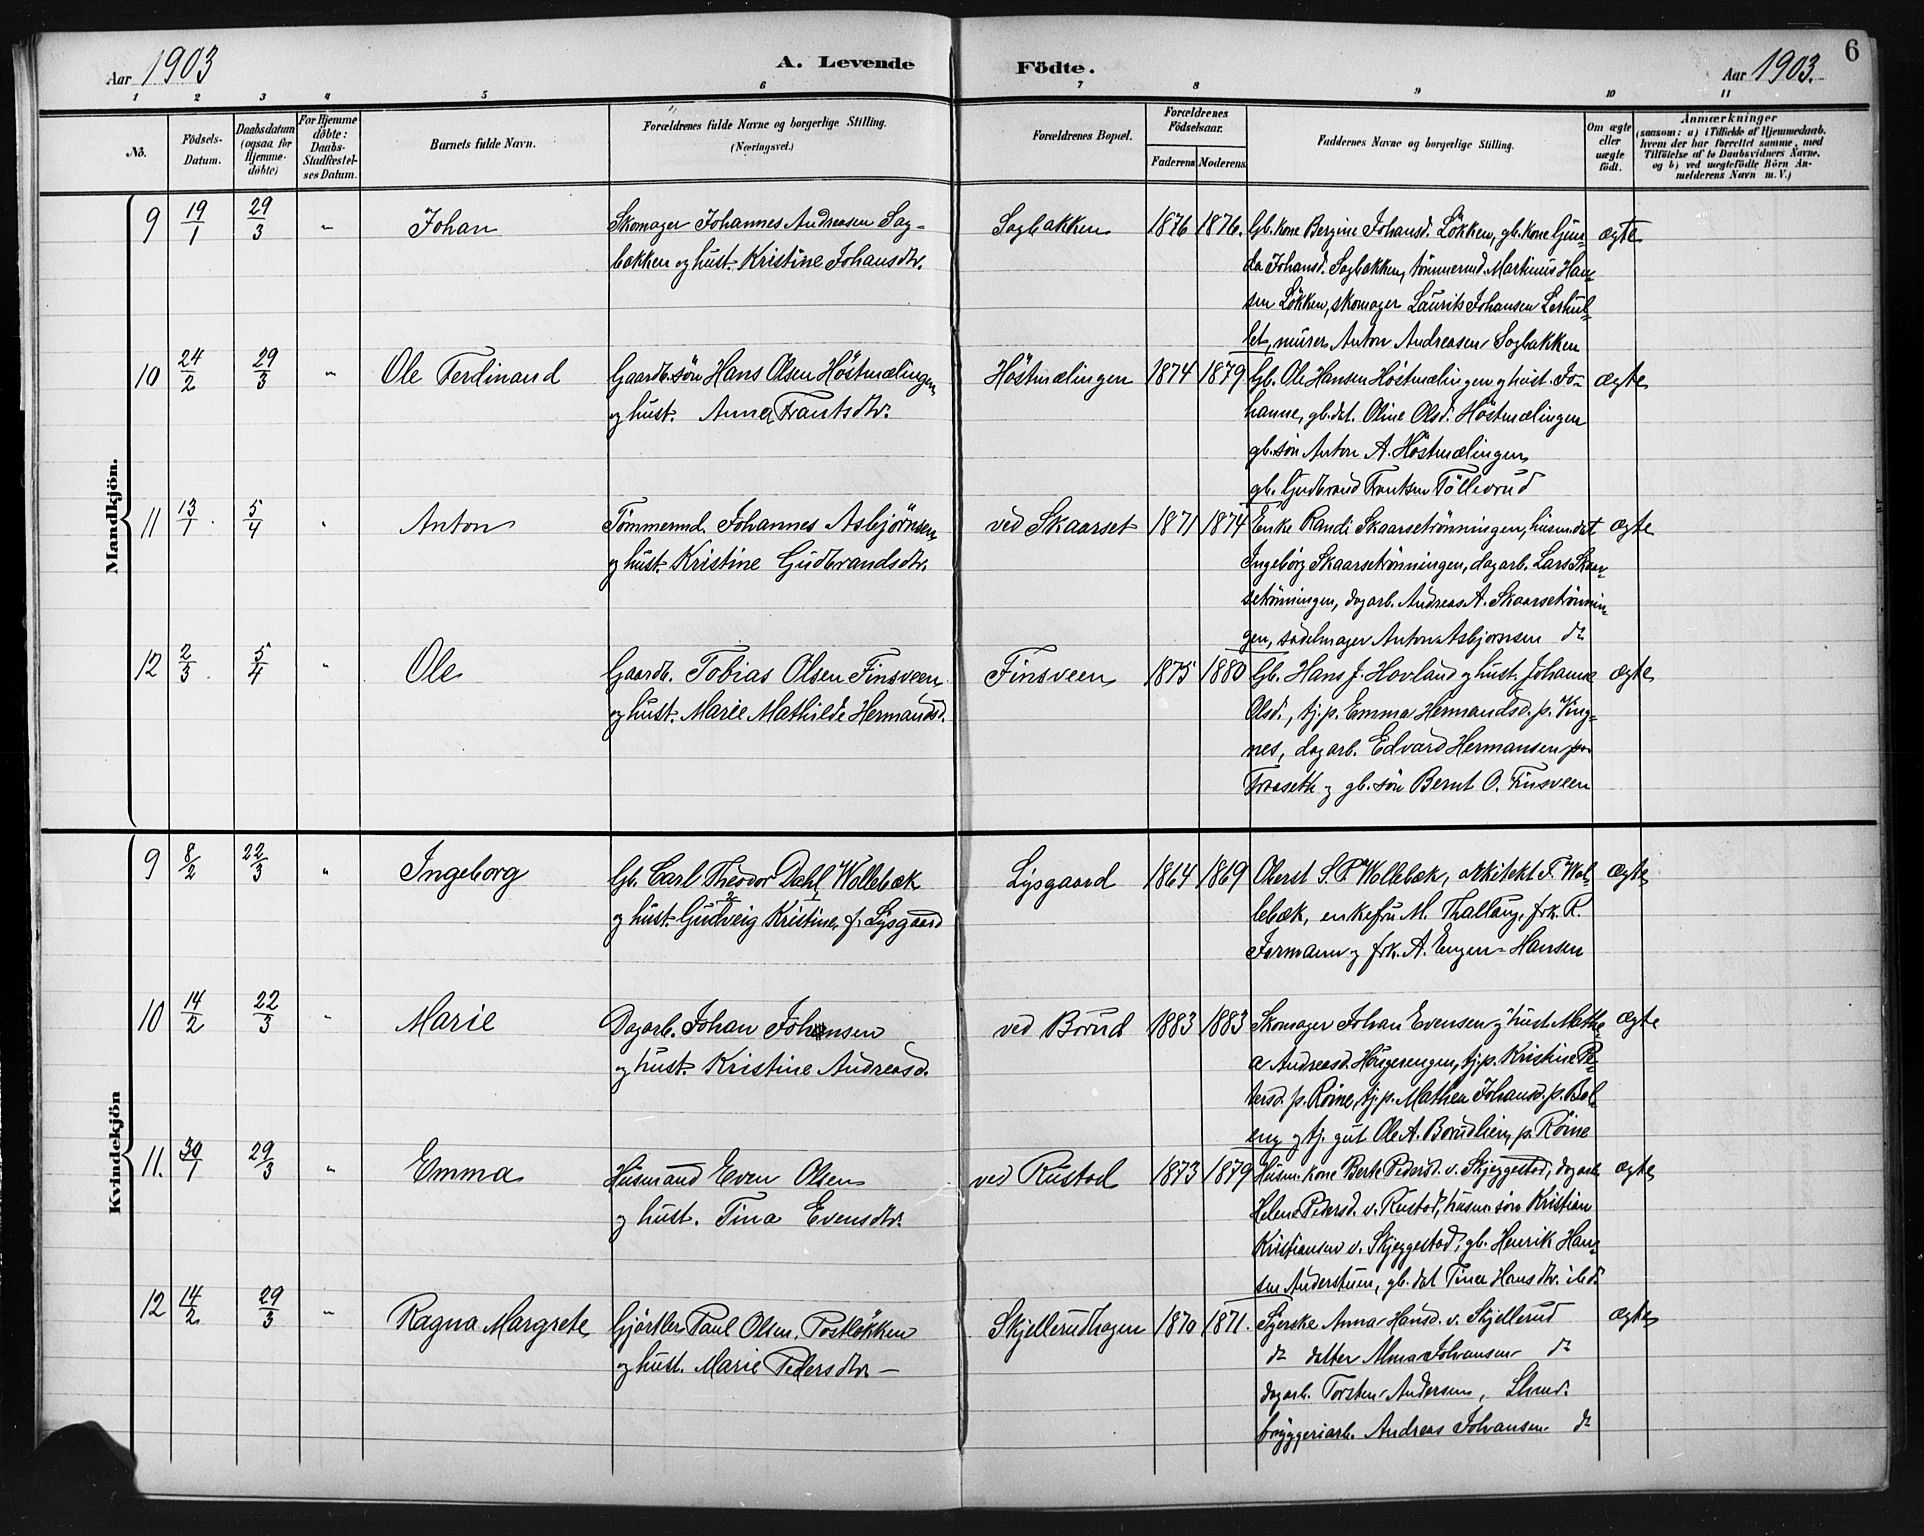 Aar 1903
A. Levende
Födte.
Aar 1903.
6
1 2 3 4 5 6 7 8 9 10 11
No.
Födsels-
Datum.
Daabsdatum
(ogsaa for
Hjemme-
döbte)
For Hjemme
döbte:
Daabs-
Stadfæstel-
ses Datum.
Barnets fulde Navn.
Forældrenes fulde Navne og borgerlige Stilling.
(Næringsvei.)
Forældrenes Bopæl.
Forældrenes
Födselsaar.
Faderens
Moderens.
Faddernes Navne og borgerlige Stilling.
Om ægte
eller
uægte
födt.
Anmærkninger
(saasom: a) i Tilfælde af Hjemmedaab,
hvem der har forrettet samme, med
Tilföielse af to Daabsvidners Navne,
og b) ved uægtefödte Börn An-
melderens Navn m. V.)
Mandkjön.
9 19/1 29/3 " Johan
Skomager Johannes Andreasen Sag-
bakken og hust. Kristine Johansdtr.
Sagbakken 1876 1876.
Gb. kone Bergine Johansd. Lökken, gb. kone Gun-
da Johansd. Sagbakken, tömmermd. Martinius Han-
sen Lökken, skomager Laurits Johansen Lerhul-
let, murer Anton Andreasen Sagbakken
ægte
10 24/2 29/3 " Ole Ferdinand
Gaardb. sön Hans Olsen Höstmælingen
og hust. Anna Frantsdtr.
Höstmælingen 1874 1879
Gb. Ole Hansen Höstmælingen og hust. Jo-
hanne, gb. dat. Oline Olsd. Höstmælingen
gb. sön Anton A. Höstmælingen
gb. Gudbrand Frantsen Töllerud
ægte
11 13/1 5/4 " Anton
Tömmermd. Johannes Asbjørnsen
og hust. Kristine Gudbrandsdtr.
ved Skaarset 1871 1874
Enke Randi Skaarsetrönningen, husm. dat
Ingebörg Skaarsetrönningen, dagarb. Lars Skaar-
setrönningen, dagarb. Andreas A. Skaarsetrönnin-
gen, sadelmager Anton Asbjörnsen do
ægte
12 2/3 5/4 " Ole
Gaardb. Tobias Olsen Finsveen
og hust. Marie Mathilde Hermandsd.
Finsveen 1875 1880
Gb. Hans J. Hovland og hust. Johanne
Olsd., tj. p. Emma Hermandsd. p. Ving-
nes, dagarb. Edvard Hermansen paa
Traaseth og gb. sön Bernt O. Finsveen
ægte
Kvindekjön
9 8/2 22/3 " Ingeborg
Gb. Carl Theodor Dahl Wollebæk
og hust. Gudveig Kristine, f. Lysgaard
Lysgaard 1864 1869
Oberst S. P. Wollebæk, arkitekt F. Wol-
lebæk, enkefru M. Thallaug, frk. R.
Jormann og frk. A. Engen-Hansen
ægte
10 14/2 22/3 " Marie
Dagarb. Johan Johansen
og hust. Kristine Andreasd.
ved Borud 1883 1883
Skomager Johan Evensen og hust. Mathe-
a Andreasd. Haugerengen, tj. p. Kristine Pe-
tersd. p. Röine, tj. p. Mathea Johansd. p. Bal-
eng og tj. gut Ole A. Borudlien p. Röine
ægte
11. 30/1 29/3 " Emma
Husmand Even Olsen
og hust. Tina Evensdtr.
ved Rustad 1873 1879
Husm. kone Berte Pedersd. v. Skjeggestad, dagarb.
Helene Pedersd. v. Rustad, husm. sön Kristian
Kristiansen v. Skjeggestad, gb. Henrik Han-
sen Anderstuen, gb. dat Tina Hansdtr. ibd.
ægte
12 14/2 29/3 " Ragna Margrete
Gjörtler Paul Olsen Postlökken
og hust. Marie Pedersdtr. —
Skjellerudhagen 1870 1871.
Syerske Anna Hansd. v. Skjellerud
do datter Alma Johansen do
dagarb. Torsten Andersen,
bryggeriarb. Andreas Johansen do
ægte